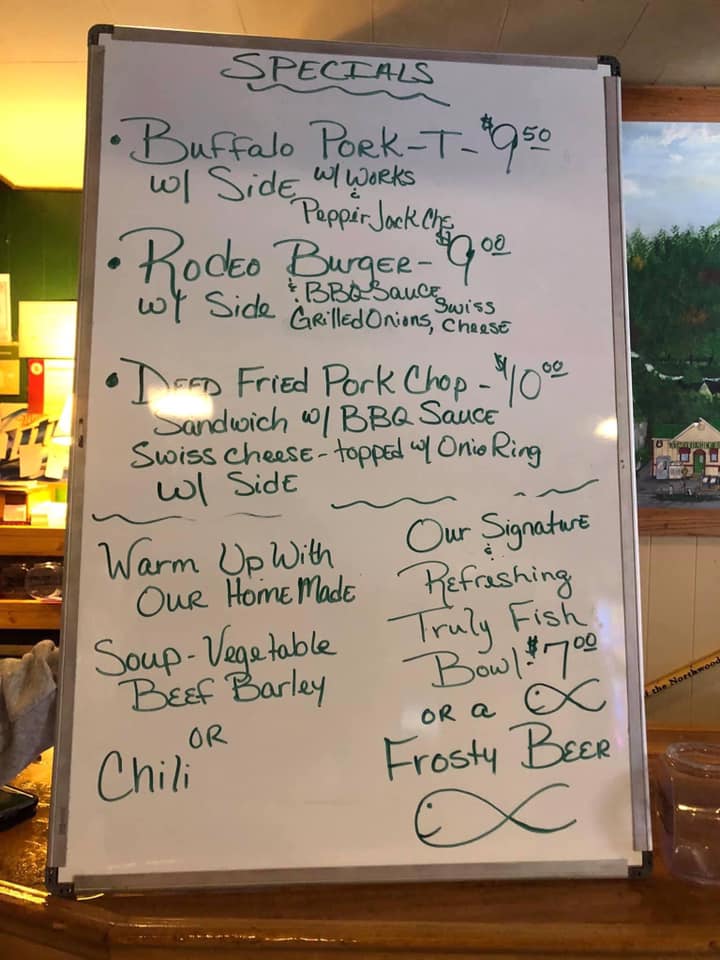 SPECIALS
• Buffalo Pork-T- $9.50
w/ Side w/ Works
&
Pepper Jack Che
• Rodeo Burger- $9.00
w/ Side & BBQ Sauce, Swiss
Grilled Onions, Cheese
• Deep Fried Pork Chop - $10.00
Sandwich w/ BBQ Sauce
Swiss Cheese - topped w/ Onio Ring
w/ Side
Warm Up With
Our Home Made
Soup - Vegetable
Beef Barley
OR
Chili
Our Signature
&
Refreshing
Truly Fish
Bowl! $7.00
OR a
Frosty Beer
the Northwood